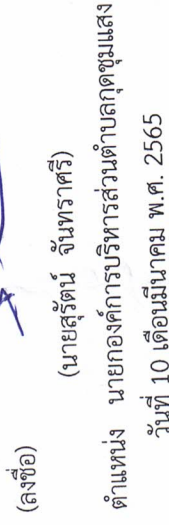 (ลงชื่อ)
(นายสุรัตน์ จันทราศรี)
ตำแหน่ง นายกองค์การบริหารส่วนตำบลกุดชุมแสง
วันที่ 10 เดือนมีนาคม พ.ศ. 2565